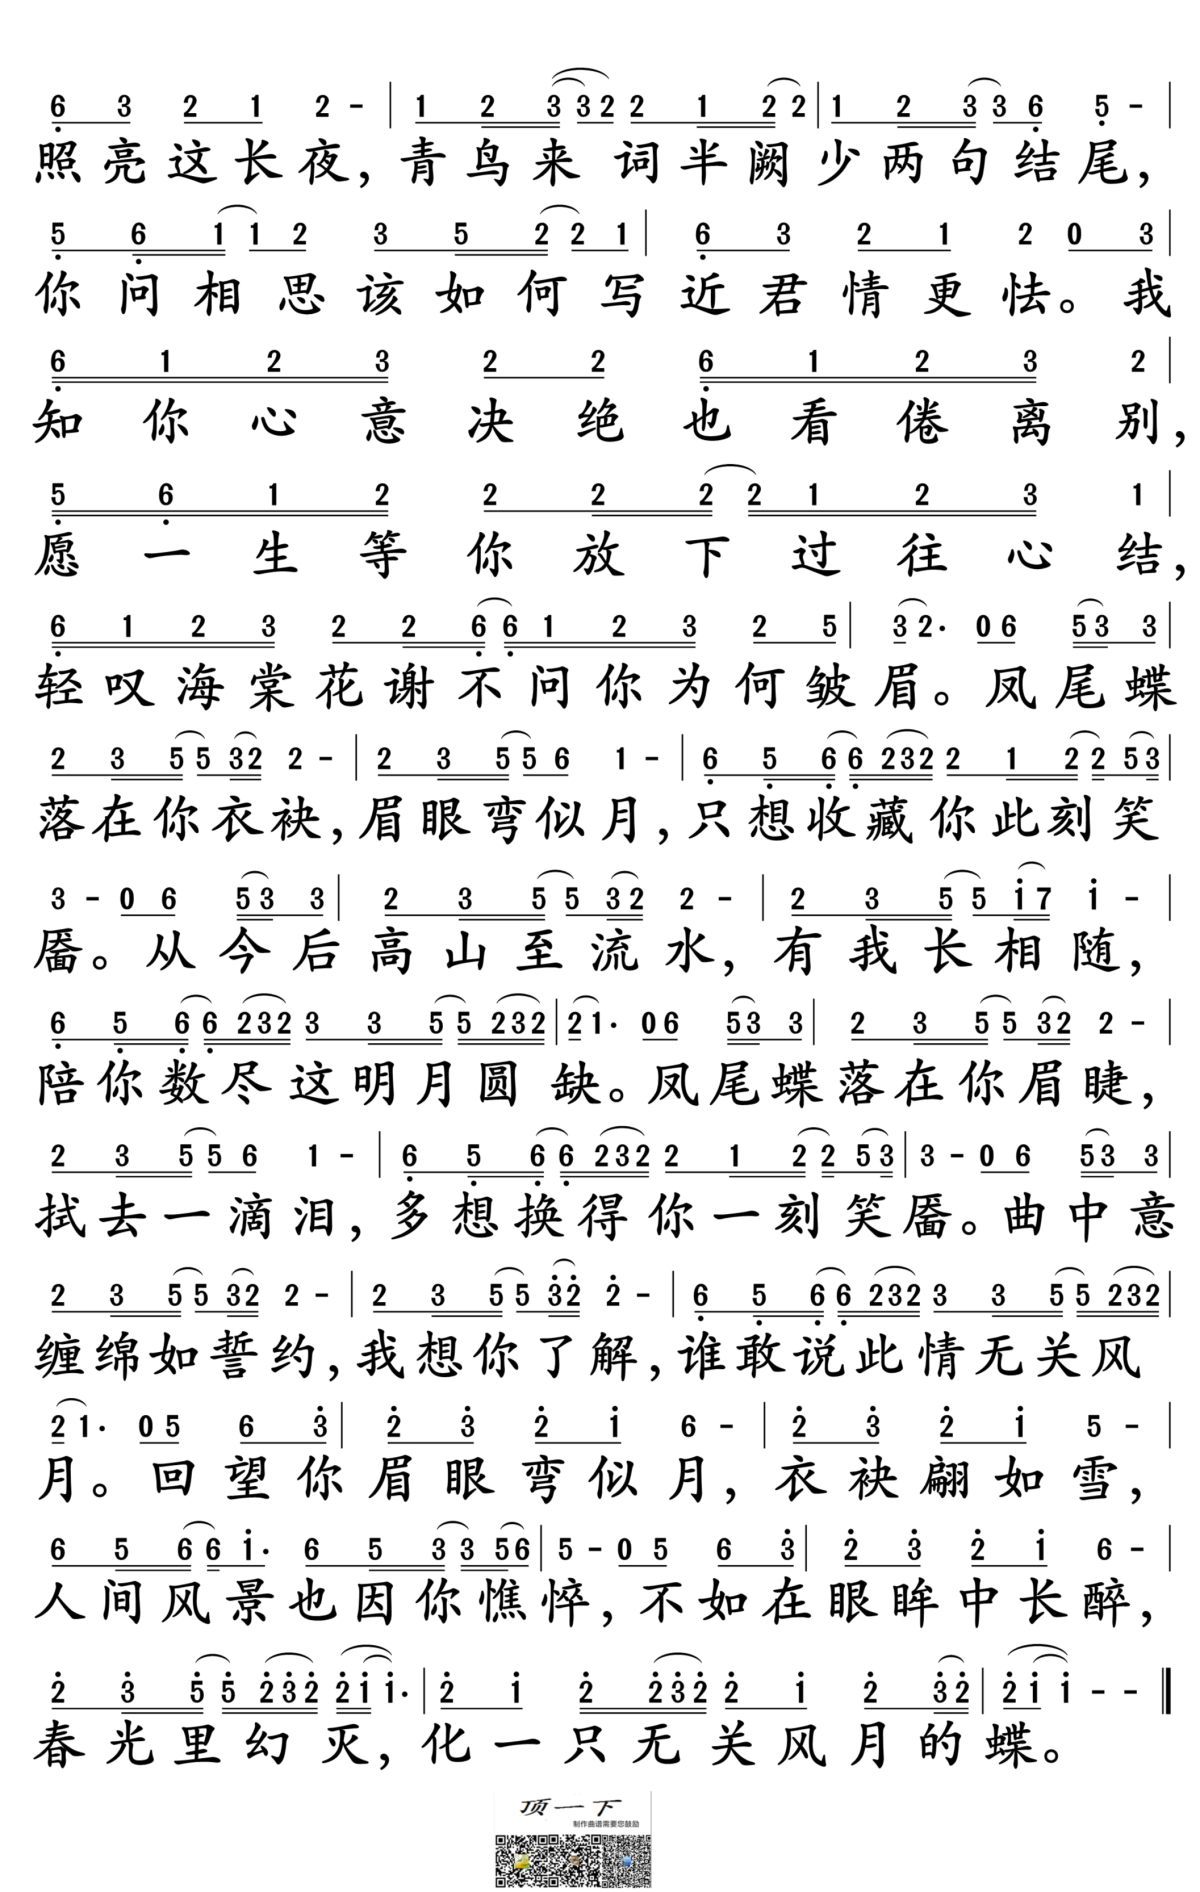 6 3 2 1 2 - | 1 2 3 3 2 2 1 2 2 | 1 2 3 3 6 5 - |
照亮这长夜,青鸟来 词半阙少两句结尾,
5 6 1 1 2 3 5 2 2 1 | 6 3 2 1 2 0 3 |
你问相思该如何写近君情更怯。我
6 1 2 3 2 2 6 1 2 3 2 |
知你心意决绝也看倦离别,
5 6 1 2 2 2 2 2 1 2 3 1 |
愿一生等你放下过往心结,
6 1 2 3 2 2 6 6 1 2 3 2 5 | 3 2· 0 6 5 3 3 |
轻叹海棠花谢不问你为何皱眉。凤尾蝶
2 3 5 5 3 2 2 - | 2 3 5 5 6 1 - | 6 5 6 6 2 3 2 2 1 2 2 5 3 |
落在你衣袂,眉眼弯似月,只想收藏你此刻笑
3 - 0 6 5 3 3 | 2 3 5 5 3 2 2 - | 2 3 5 5 1 7 1 - |
靥。从今后高山至流水,有我长相随,
6 5 6 6 2 3 2 3 3 5 5 2 3 2 | 2 1· 0 6 5 3 3 | 2 3 5 5 3 2 2 - |
陪你数尽这明月圆 缺。凤尾蝶落在你眉睫,
2 3 5 5 6 1 - | 6 5 6 6 2 3 2 2 1 2 2 5 3 | 3 - 0 6 5 3 3 |
拭去一滴泪,多想换得你一刻笑靥。曲中意
2 3 5 5 3 2 2 - | 2 3 5 5 3 2 2 - | 6 5 6 6 2 3 2 3 3 5 5 2 3 2 |
缠绵如誓约,我想你了解,谁敢说此情无关风
2 1· 0 5 6 3 | 2 3 2 1 6 - | 2 3 2 1 5 - |
月。回望你眉眼弯似月,衣袂翩如雪,
6 5 6 6 1· 6 5 3 3 5 6 | 5 - 0 5 6 3 | 2 3 2 1 6 - |
人间风景也因你憔悴,不如在眼眸中长醉,
2 3 5 5 2 3 2 2 1 1· | 2 1 2 2 3 2 2 1 2 3 2 | 2 1 1 - - ‖
春光里幻灭,化一只无关风月的蝶。
顶一下
制作曲谱需要您鼓励